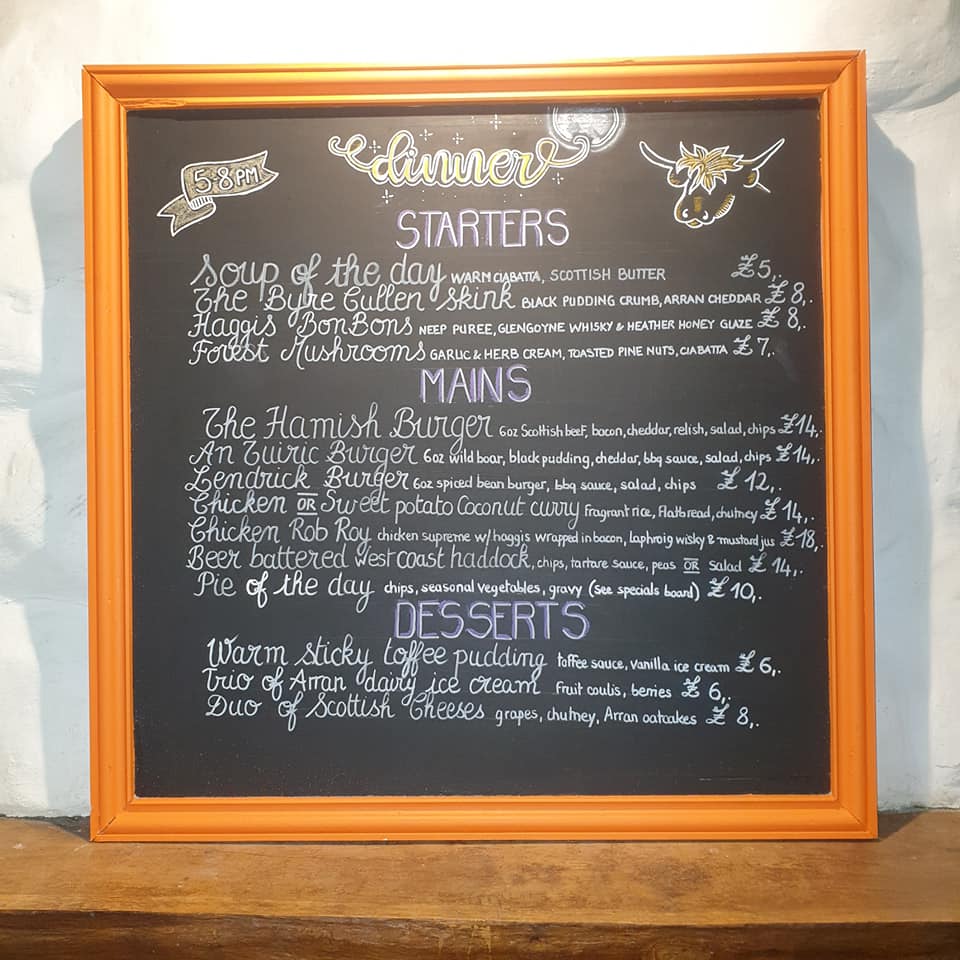 5-8PM
dinner
STARTERS
Soup of the day WARM CIABATTA, SCOTTISH BUTTER £5,.
The Byre Cullen Skink BLACK PUDDING CRUMB, ARRAN CHEDDAR £8,.
Haggis BonBons NEEP PUREE, GLENGOYNE WHISKY & HEATHER HONEY GLAZE £8,.
Forest Mushrooms GARLIC & HERB CREAM, TOASTED PINE NUTS, CIABATTA £7,.
MAINS
The Hamish Burger 6oz Scottish beef, bacon, cheddar, relish, salad, chips £14,.
An Tuiric Burger 6oz wild boar, black pudding, cheddar, bbq sauce, salad, chips £14,.
Lendrick Burger 6oz spiced bean burger, bbq sauce, salad, chips £12,.
Chicken OR Sweet potato Coconut curry fragrant rice, flatbread, chutney £14,.
Chicken Rob Roy chicken supreme w/ haggis wrapped in bacon, laphroig wisky & mustard jus £18,.
Beer battered West coast haddock, chips, tartare sauce, peas OR salad £14,.
Pie of the day chips, seasonal vegetables, gravy (See specials board) £10,.
DESSERTS
Warm sticky toffee pudding toffee sauce, vanilla ice cream £6,.
Trio of Arran dairy ice cream fruit coulis, berries £6,.
Duo of Scottish Cheeses grapes, chutney, Arran oatcakes £8,.